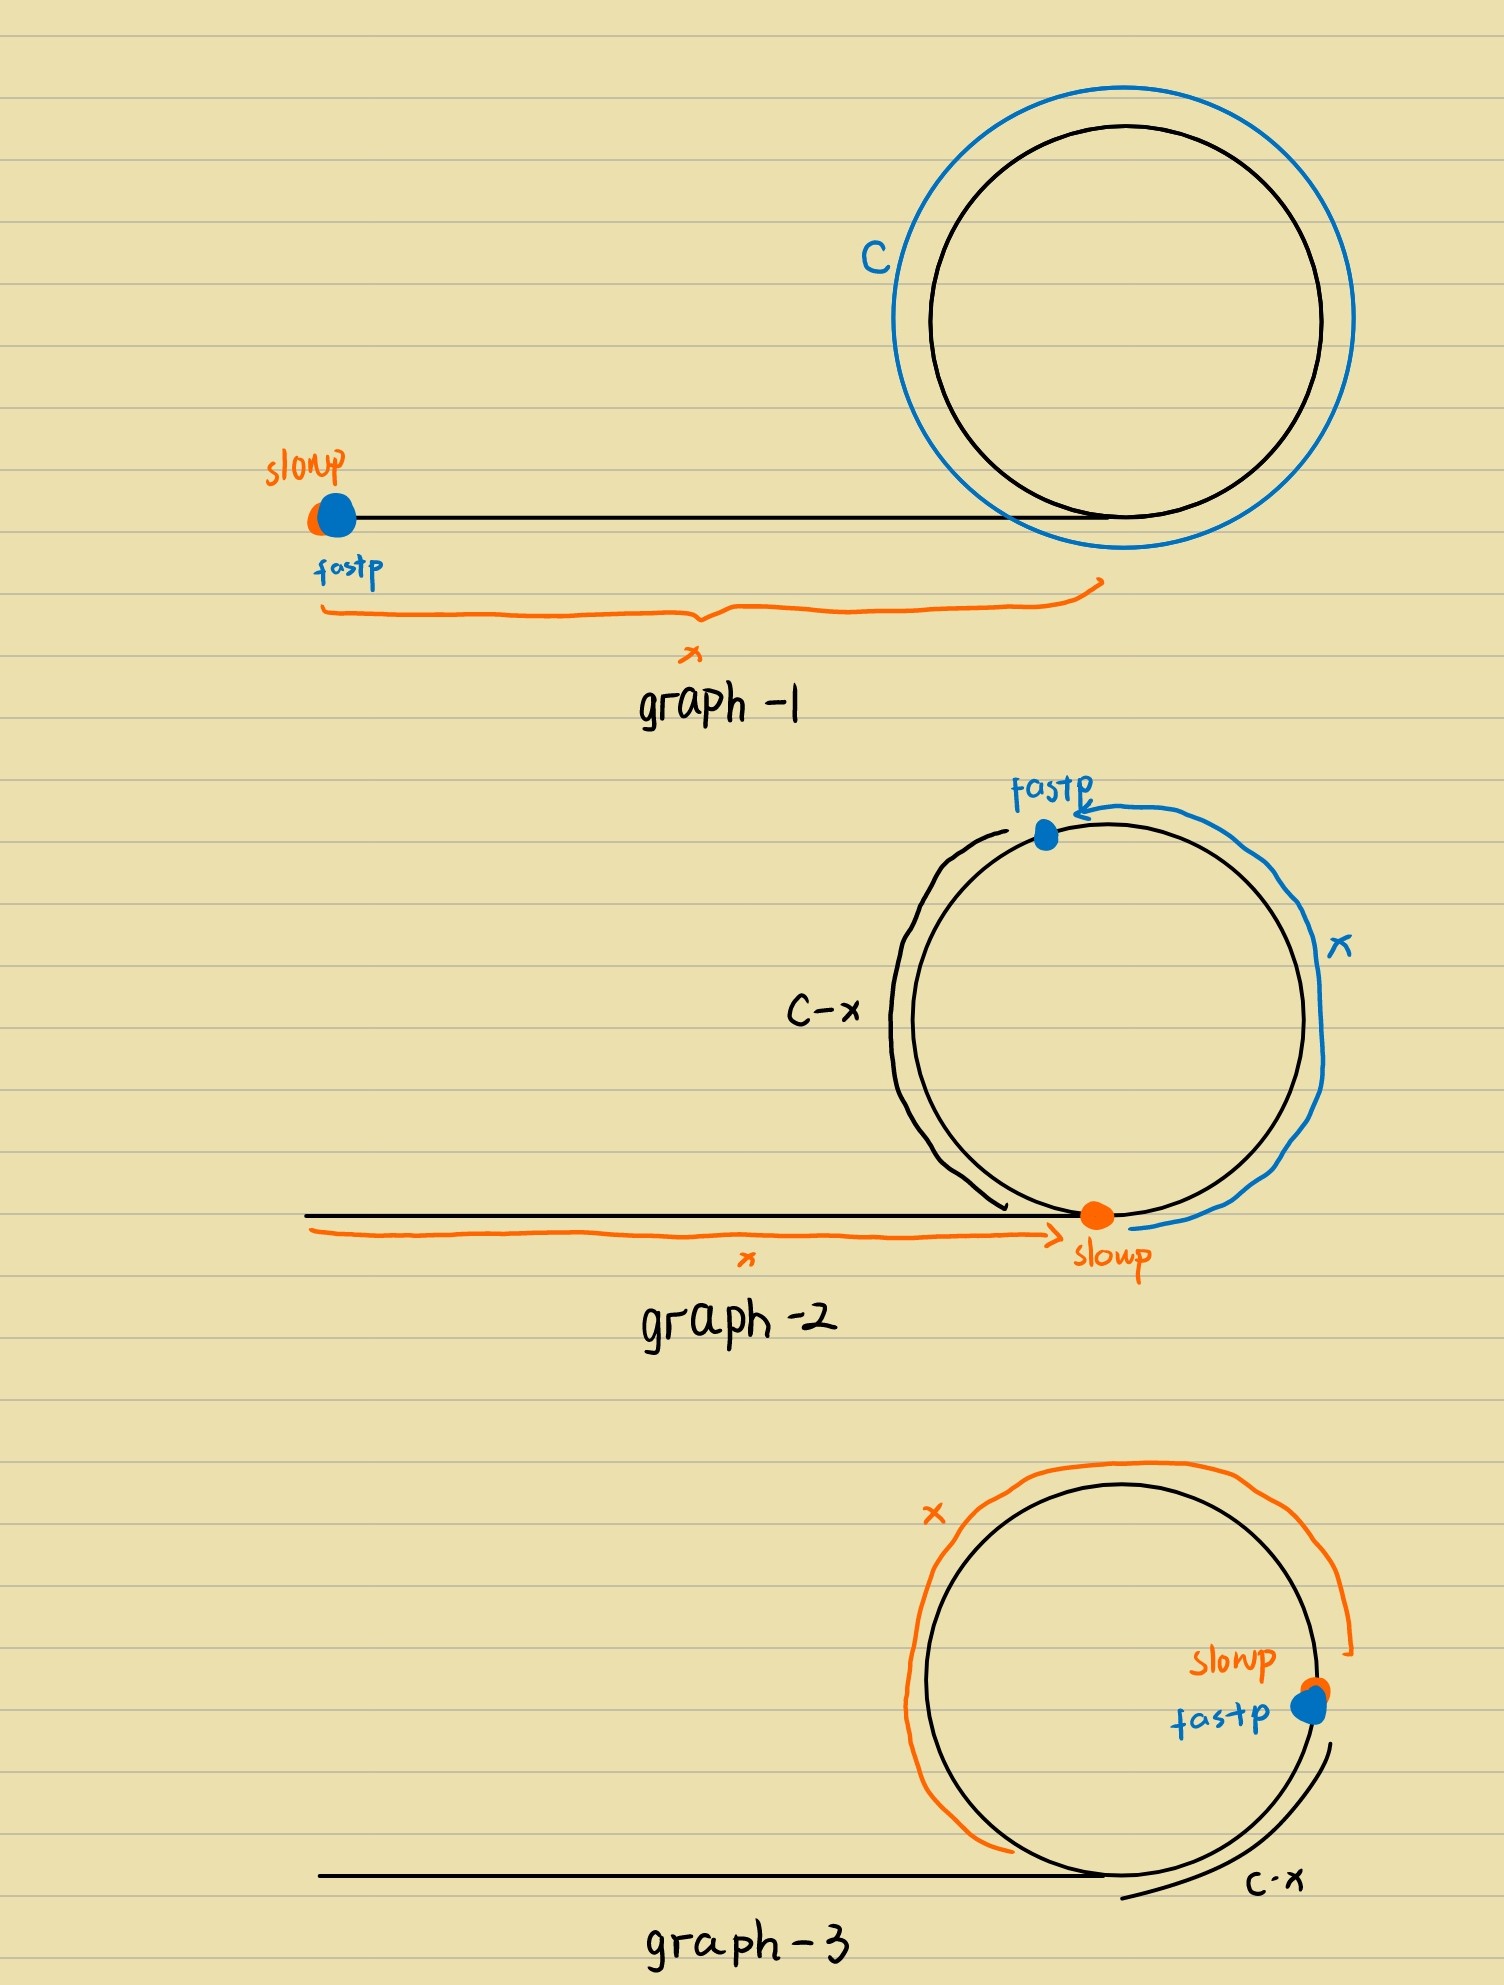 C
slowp
fastp
x
graph -1
fastp
x
C-x
x
slowp
graph -2
x
slowp
fastp
C-x
graph-3